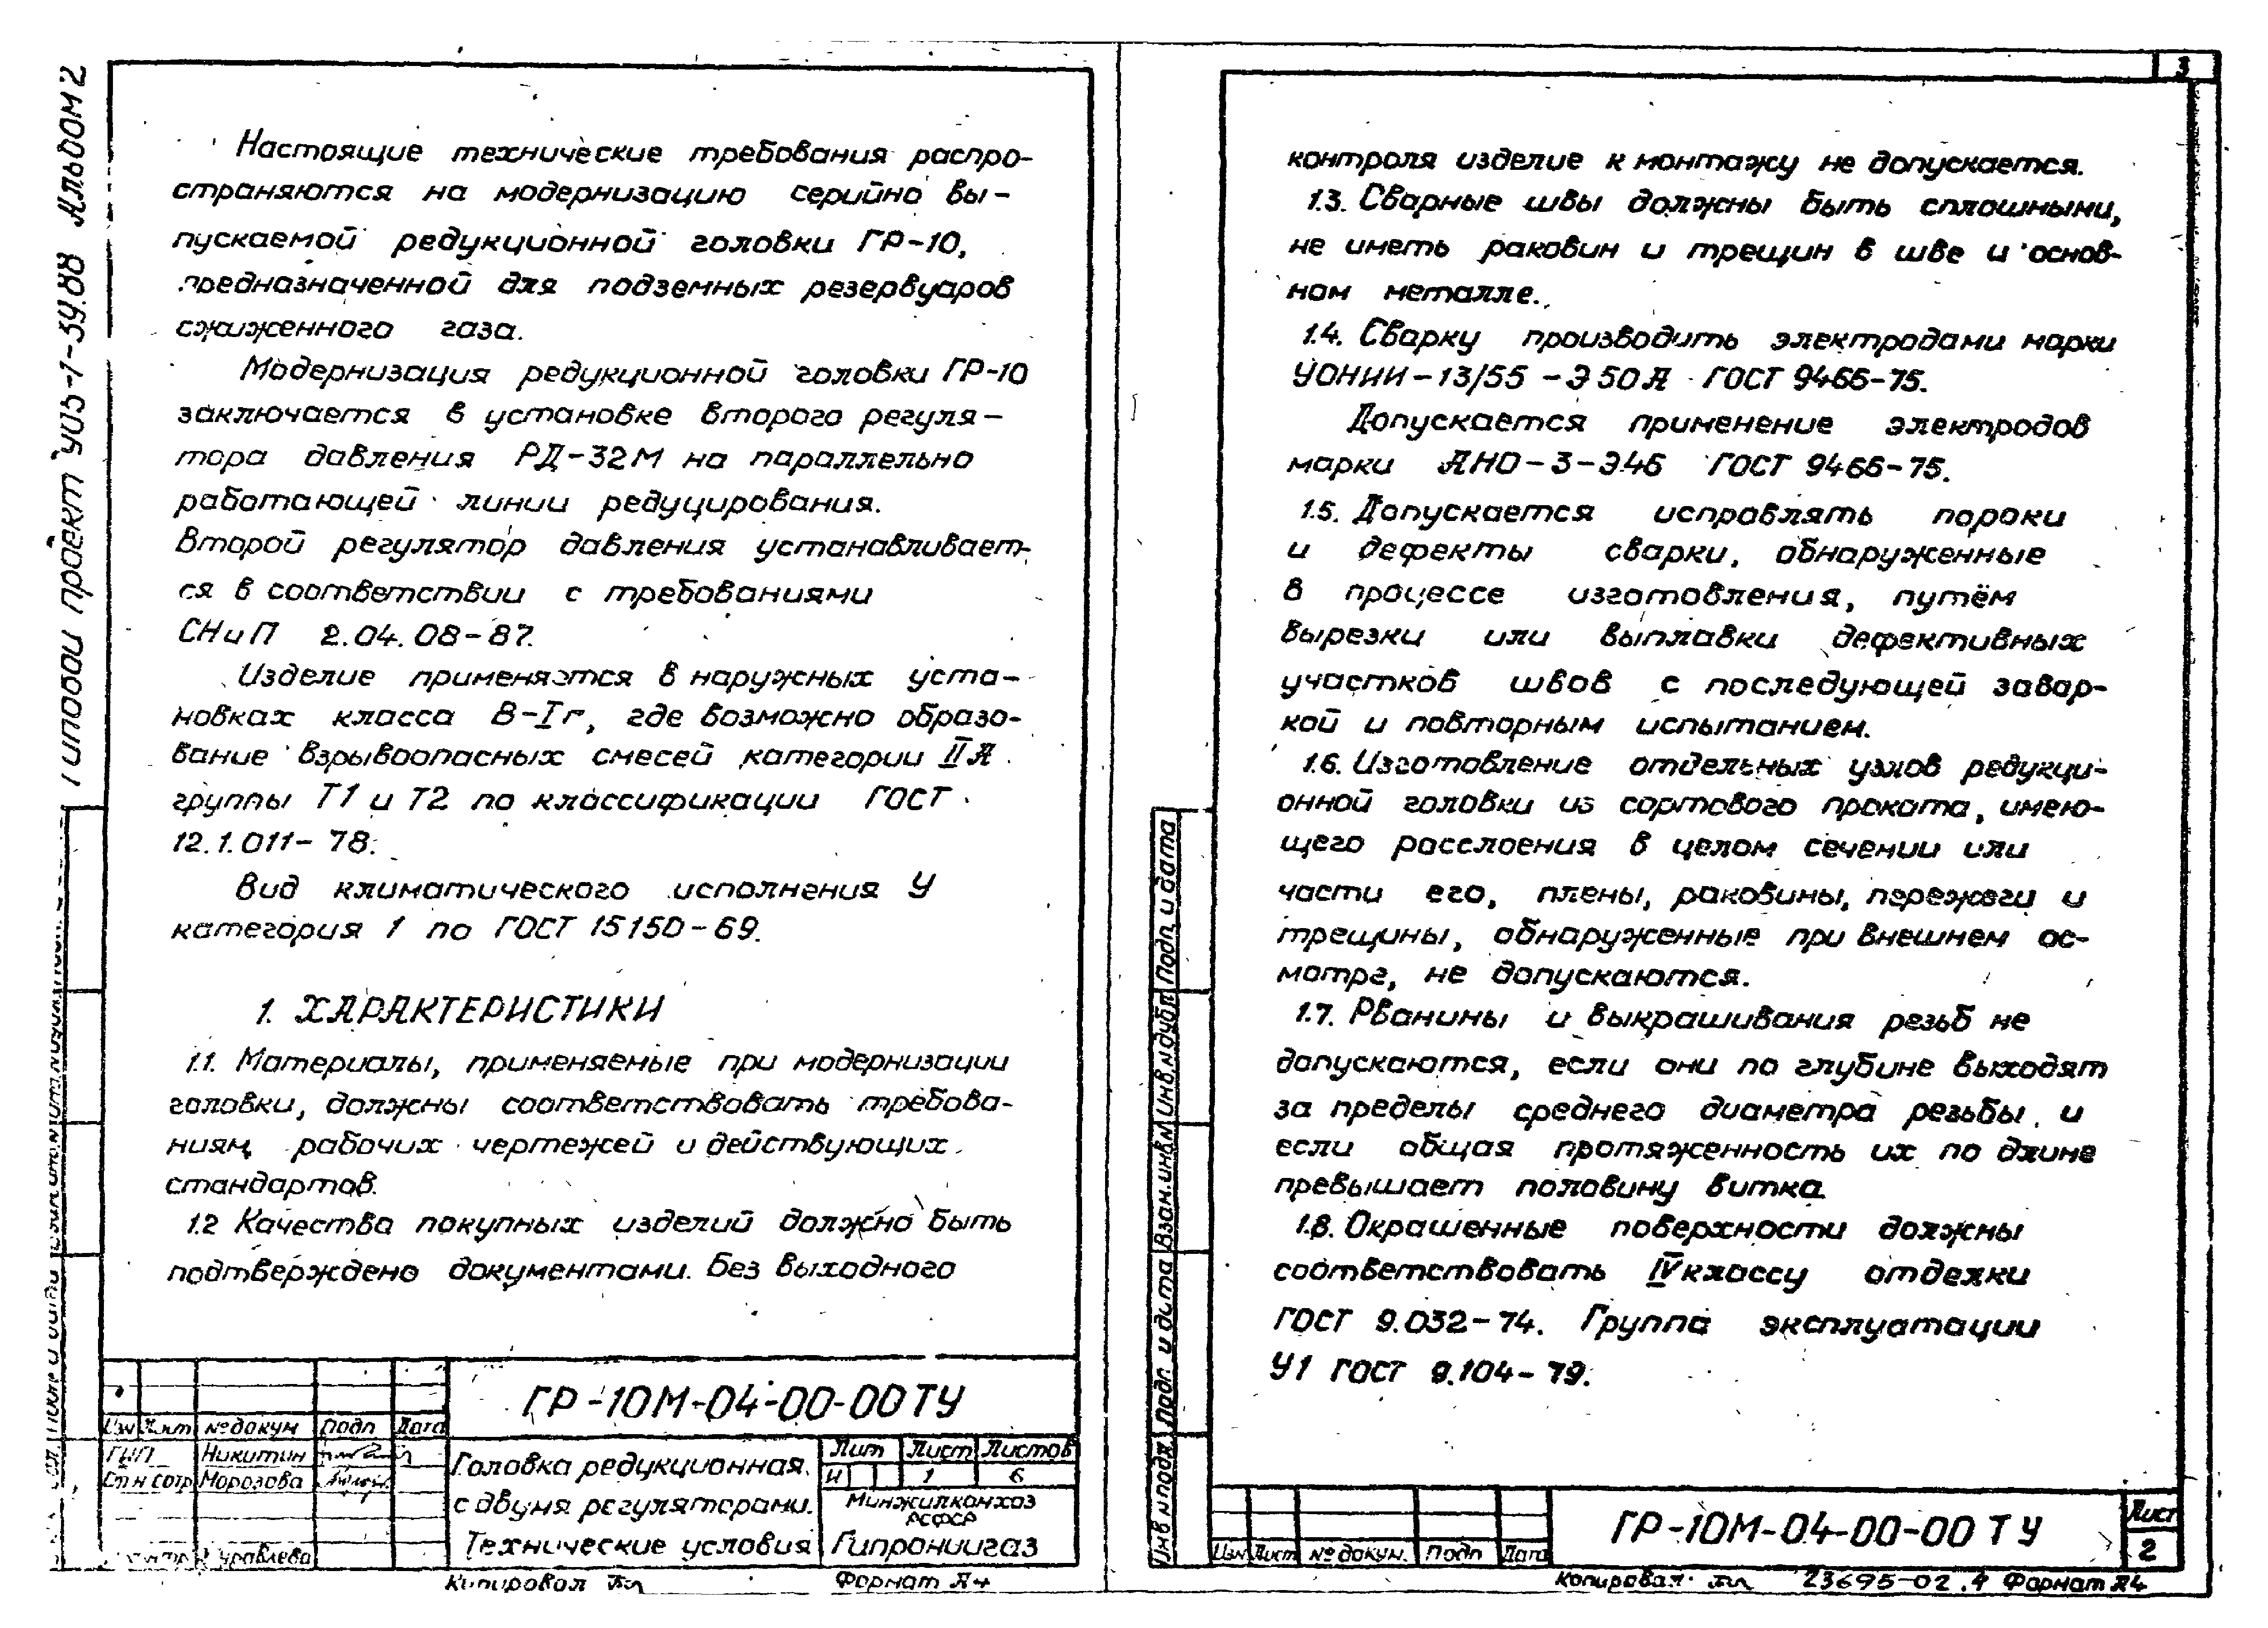 Альбом 2
Типовой проект
Настоящие технические требования распро-
страняются на модернизацию серийно вы-
пускаемой редукционной головки ГР-10,
предназначенной для подземных резервуаров
сжиженного газа.
Модернизация редукционной головки ГР-10
заключается в установке второго регуля-
тора давления РД-32М на параллельно
работающей линии редуцирования.
Второй регулятор давления устанавливает-
ся в соответствии с требованиями
СНиП 2.04.08-87.
Изделие применяется в наружных уста-
новках класса В-Iг, где возможно образо-
вание взрывоопасных смесей категории IIА
группы Т1 и Т2 по классификации ГОСТ
12.1.011-78.
Вид климатического исполнения У
категория 1 по ГОСТ 15150-69.
1. ХАРАКТЕРИСТИКИ
1.1. Материалы, применяемые при модернизации
головки, должны соответствовать требова-
ниям рабочих чертежей и действующих
стандартов.
1.2 Качества покупных изделий должно быть
подтверждено документами. Без выходного
ГР-10М-04-00-00ТУ
Изм Лист № докум Подп Дата
ГИП Никитин
Ст н сотр Морозова
Журавлева
Головка редукционная
с двумя регуляторами.
Технические условия
Лит Лист Листов
И 1 6
Минжилкомхоз
РСФСР
Гипрониигаз
Копировал
Формат А4
3
контроля изделие к монтажу не допускается.
1.3. Сварные швы должны быть сплошными,
не иметь раковин и трещин в шве и основ-
ном металле.
1.4. Сварку производить электродами марки
УОНИИ-13/55-Э50А ГОСТ 9466-75.
Допускается применение электродов
марки АНО-3-Э46 ГОСТ 9466-75.
1.5. Допускается исправлять пороки
и дефекты сварки, обнаруженные
в процессе изготовления, путём
вырезки или выплавки дефективных
участков швов с последующей завар-
кой и повторным испытанием.
1.6. Изготовление отдельных узлов редукци-
онной головки из сортового проката, имею-
щего расслоения в целом сечении или
части его, плены, раковины, пережоги и
трещины, обнаруженные при внешнем ос-
мотре, не допускаются.
1.7. Рванины и выкрашивания резьб не
допускаются, если они по глубине выходят
за пределы среднего диаметра резьбы и
если общая протяженность их по длине
превышает половину витка
1.8. Окрашенные поверхности должны
соответствовать IV классу отделки
ГОСТ 9.032-74. Группа эксплуатации
У1 ГОСТ 9.104-79.
Инв.№подл. Подп. и дата Взам.инв.№ Инв.№дубл Подп. и дата
Изм Лист № докум. Подп Дата
ГР-10М-04-00-00 ТУ
Лист
2
Копировал 23695-02 4 Формат А4